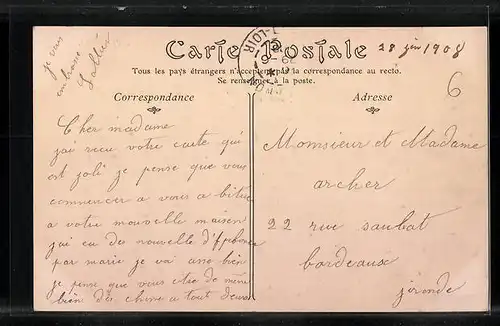 je vous
embrasse
Carte Postale
28 jin 1908
Tous les pays étrangers n'acceptent pas la correspondance au recto.
Se renseigner à la poste.
6
Correspondance
Adresse
Cher madame
jai recu votre carte qui
est joli je pense que vous
commencer a vous a bitue
a votre nouvelle maison
jai eu des nouvelle
par marie je vai une bien
je pense que vous etre de même
bien des chose a tout deux
Monsieur et Madame
archer
22 rue saubat
bordeaux
jironde